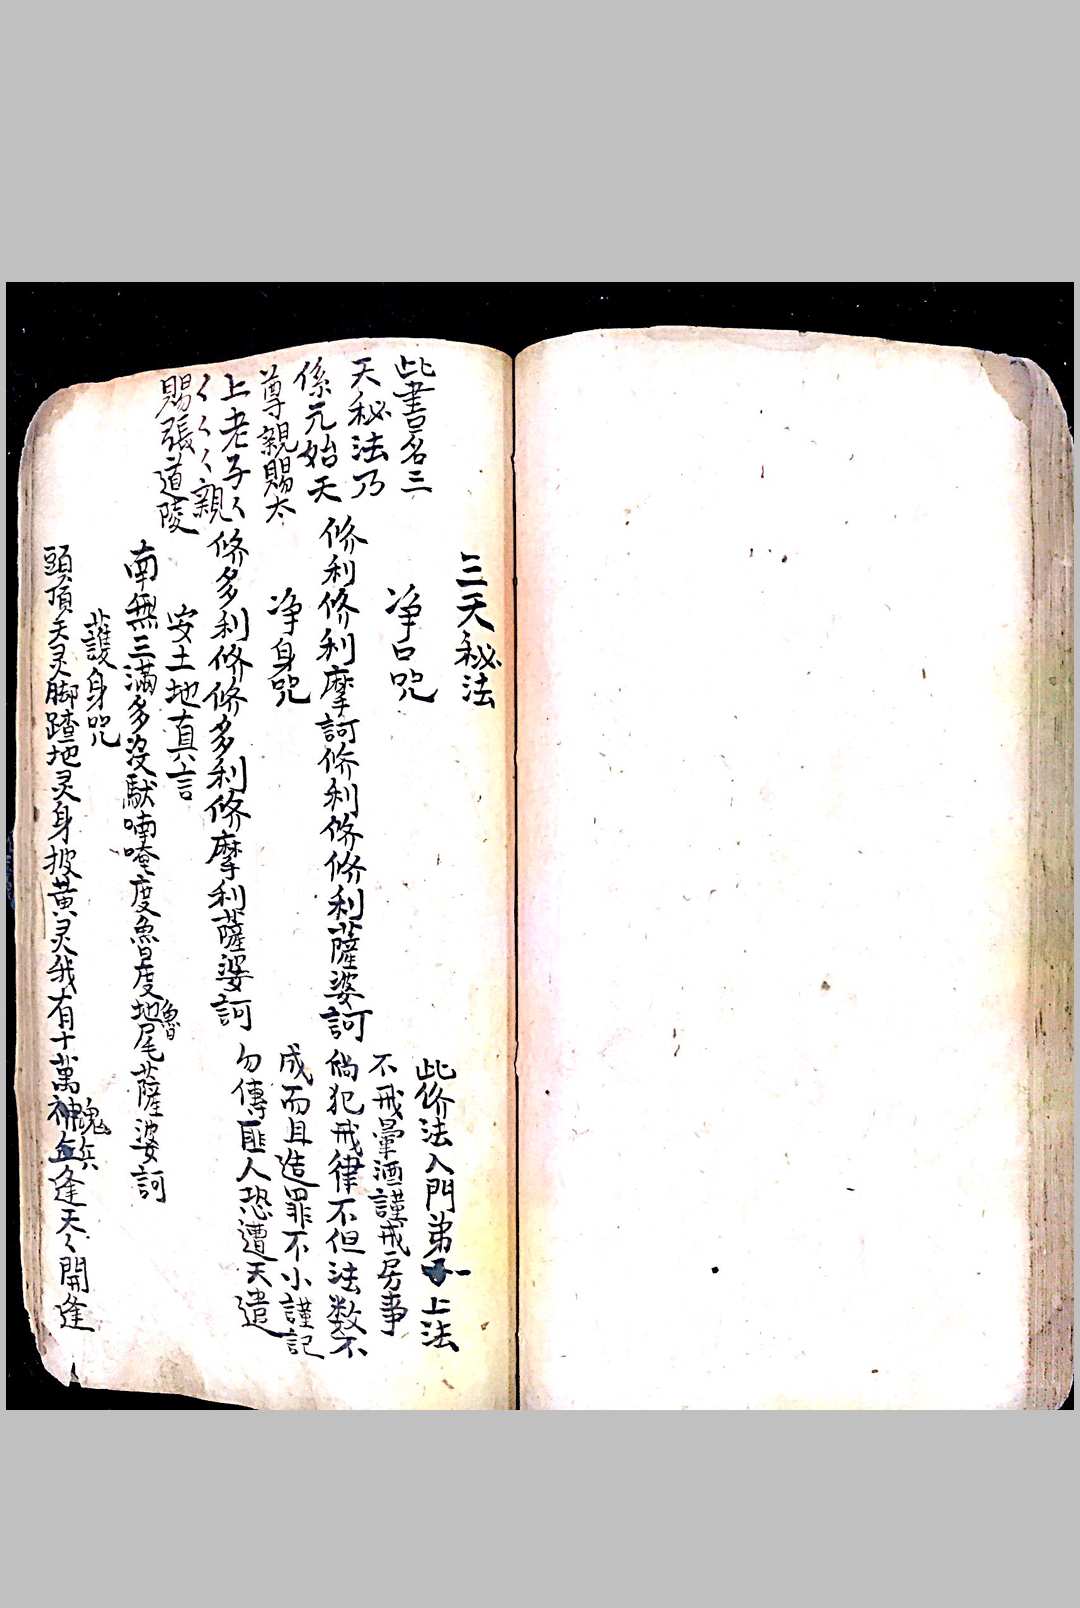 三天秘法
此書名三
天秘法乃
係元始天
尊親賜太
上老子く
くくく親
賜張道陵
净口咒
修利修利摩訶修利修修利薩婆訶
净身咒
修多利修修多利修摩利薩婆訶
安土地真言
南無三滿多没馱喃唵度魯度地尾薩婆訶
魯
護身咒
頭頂天灵脚踏地灵身披黄灵我有十萬神兵逢天く開逢
魂兵
此修法入門弟子上法
不戒暈酒謹戒房事
倘犯戒律不但法数不
成而且造罪不小謹記
勿傳匪人恐遭天遣